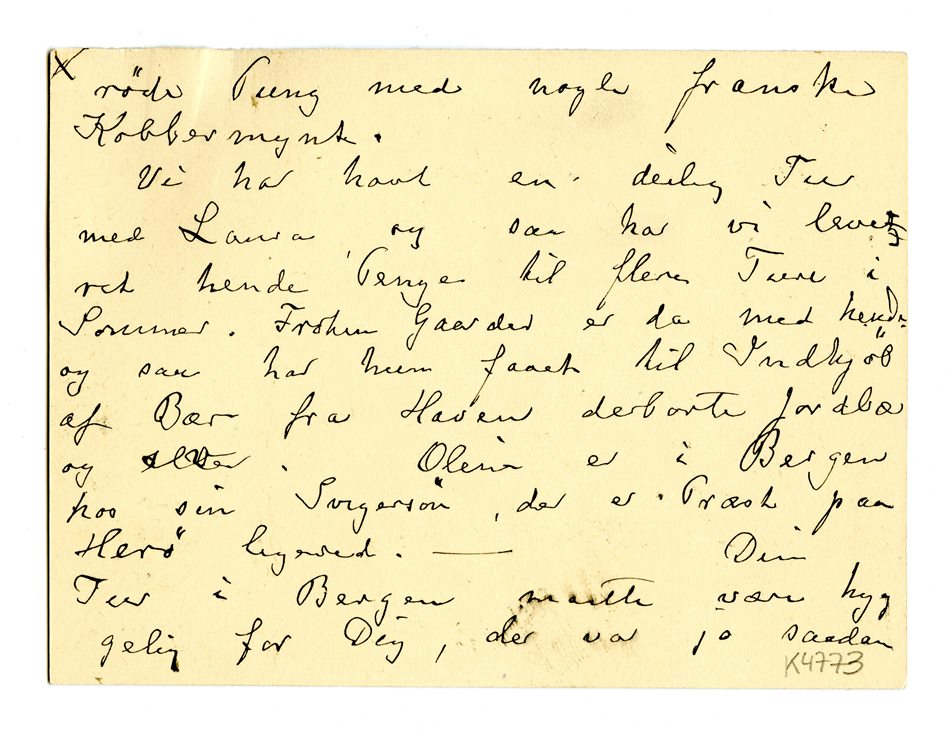 X
røde Pung med nogle franske
Kobbermynte.
Vi har havt en deilig Tur
med Laura og saa har vi levet
ret hende Penge til flere Ture i
Sommer. Frøken Gaarder er da med hende
og saa har hun faaet til Indkjøb
af Bær fra Haven derborte Jordbæ
og. Olein er i Bergen
hos sin Svigersøn, der er Præst paa
Herø ligeved. —
Din
Tur i Bergen maatte være hyg
gelig for Dig, der var jo saadan
K4773